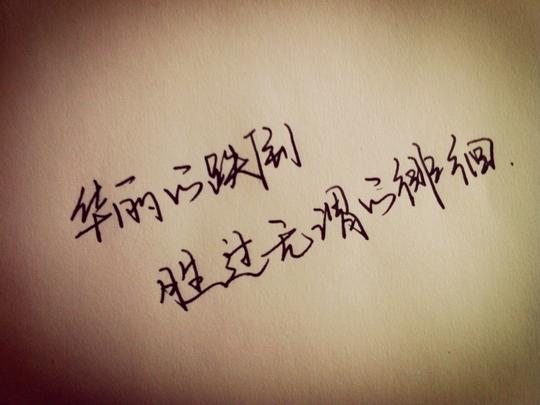 华丽的跌倒
胜过无谓的徘徊.